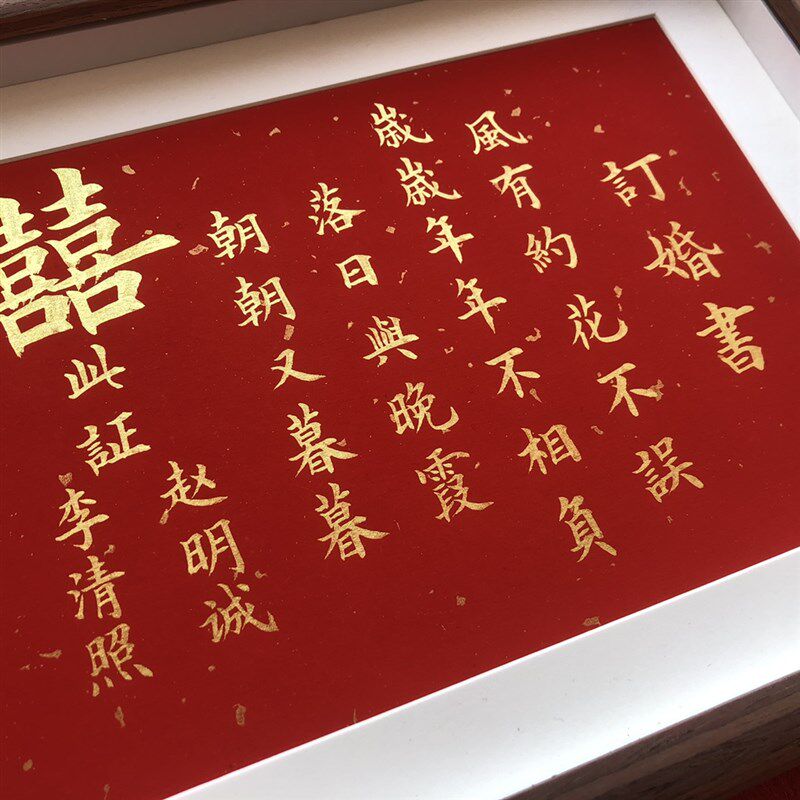 訂婚書
風有約花不誤
歲歲年年不相負
落日與晚霞
朝朝又暮暮
赵明诚
李清照
此証
囍